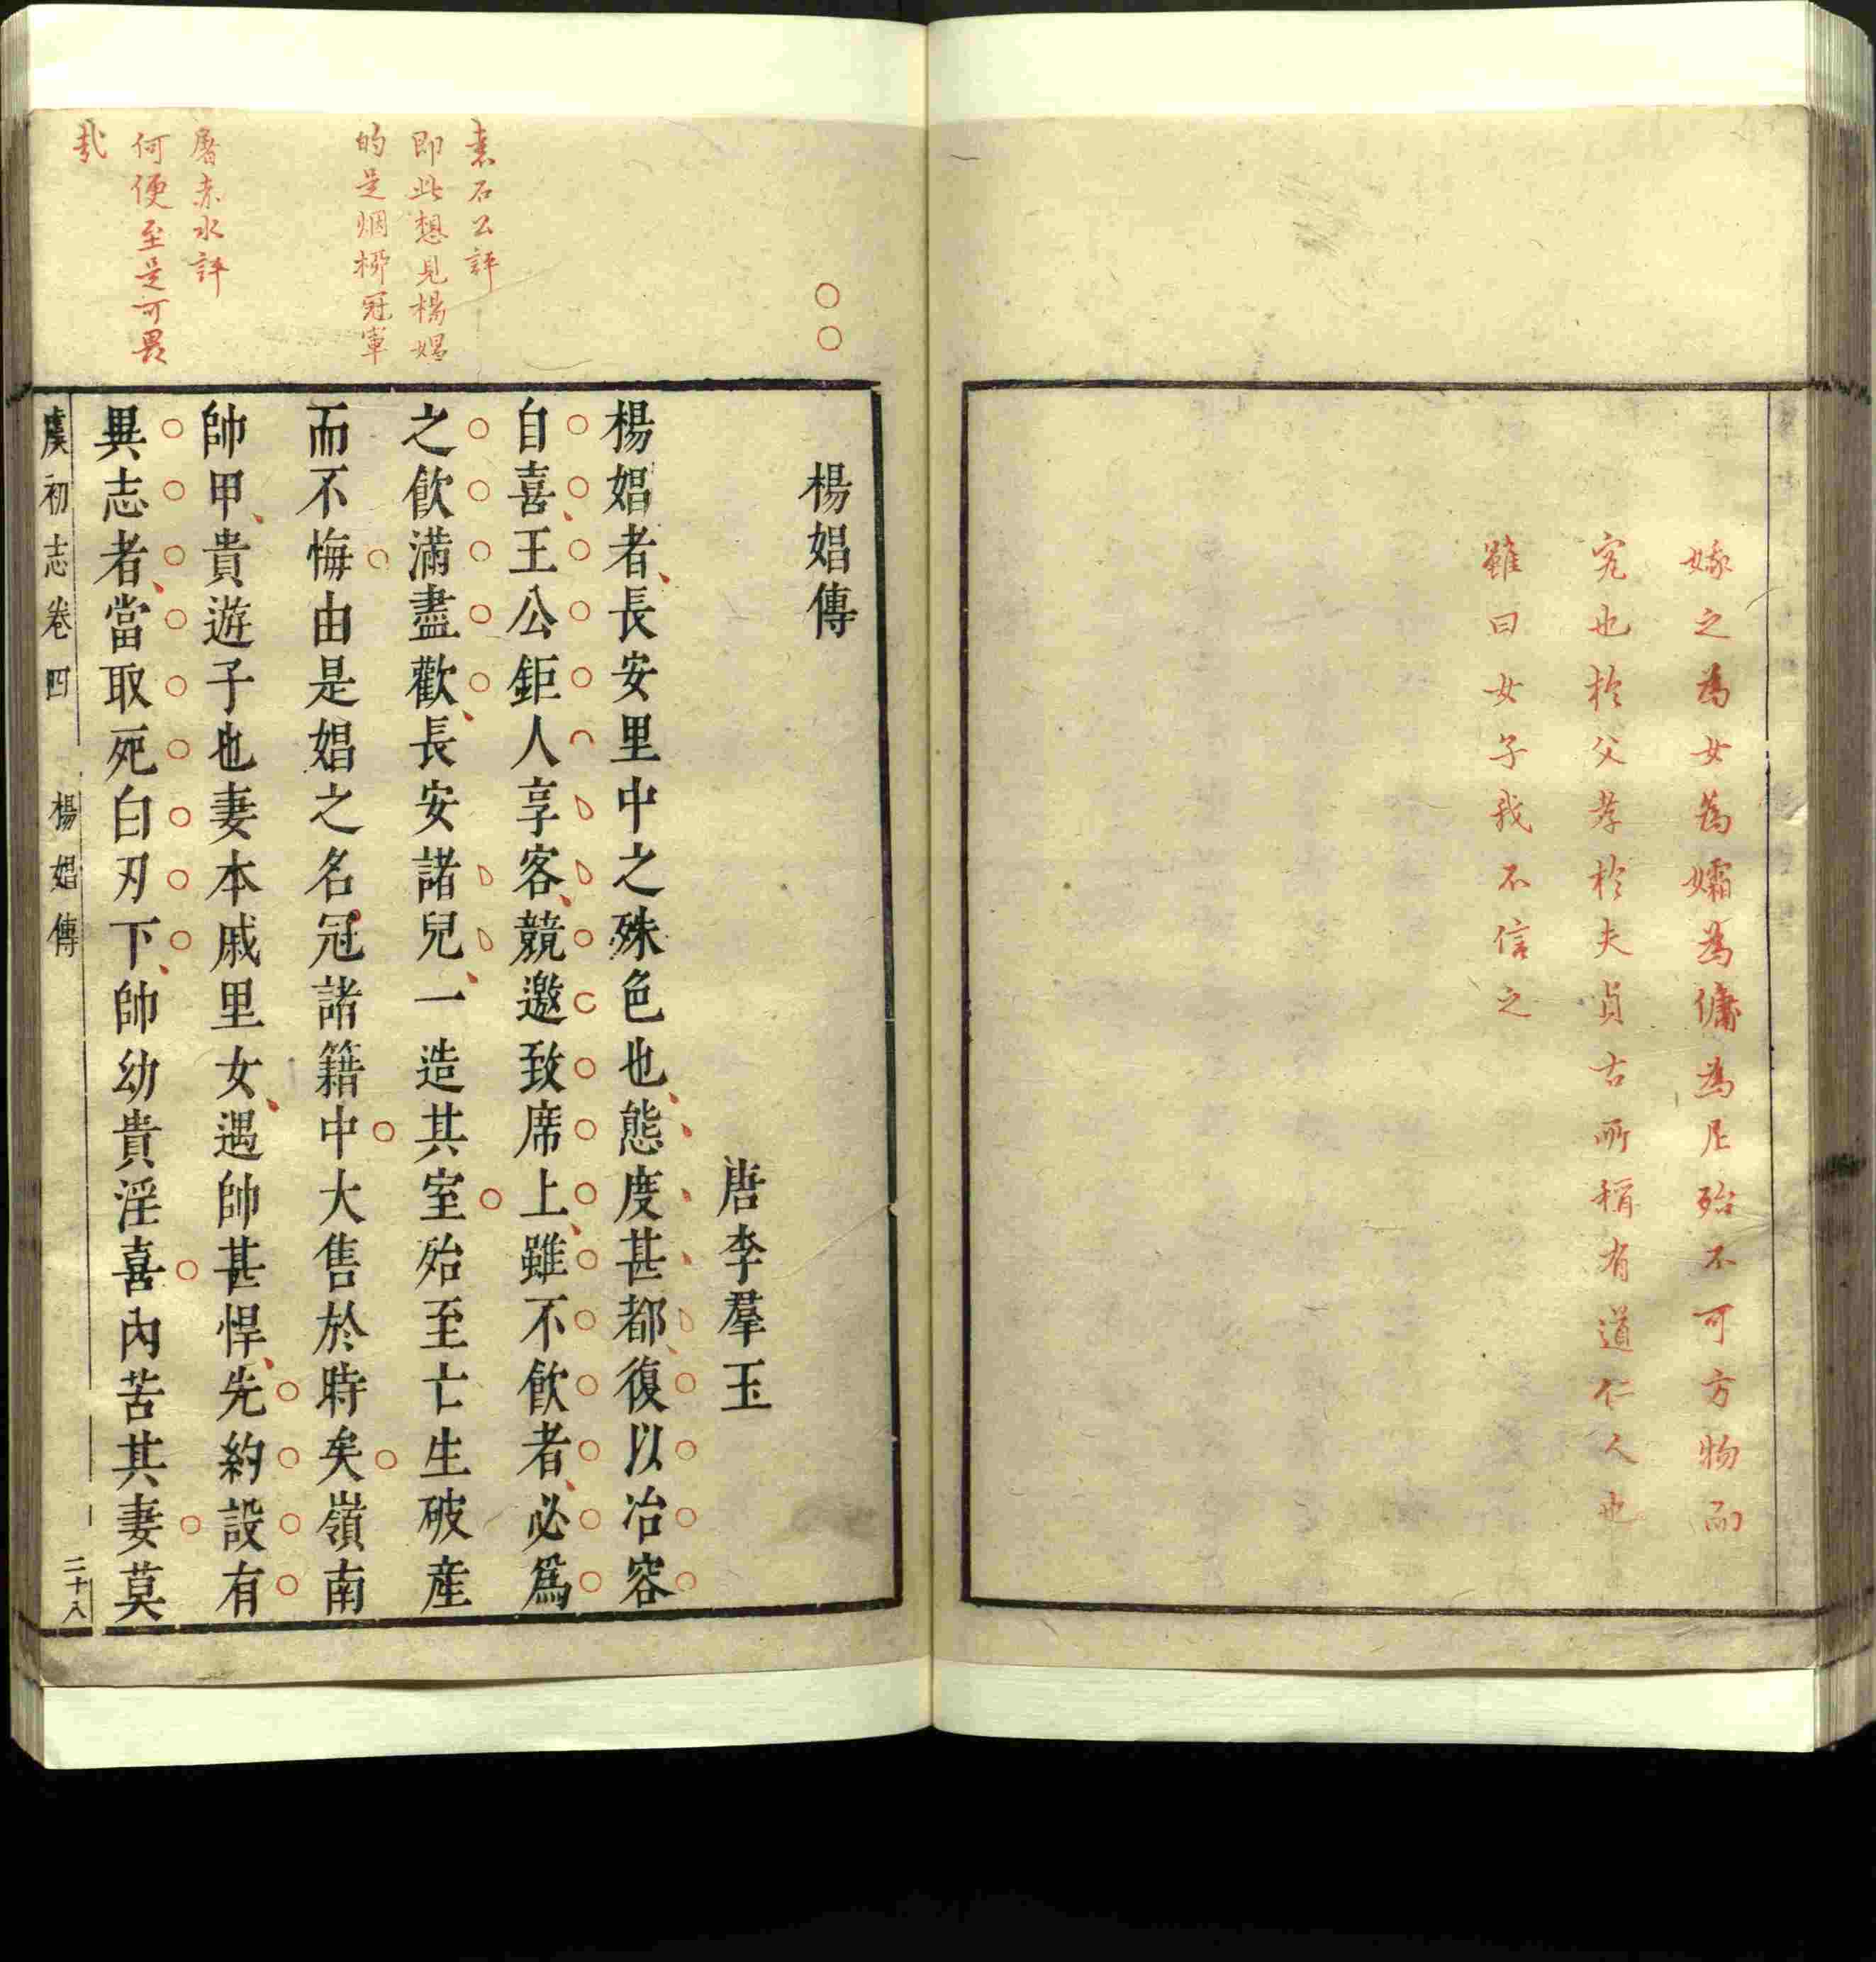 娥之為女為孀為傭為尼殆不可方物而
究也於父孝於夫貞古所稱有道仁人也
雖曰女子我不信之
袁石公評
即此想見楊娼
的是烟柳冠軍
屠赤水評
何便至是可畏
哉
楊娼傳
唐李羣玉
楊娼者長安里中之殊色也態度甚都復以冶容
自喜王公鉅人享客競邀致席上雖不飲者必爲
之飲滿盡歡長安諸兒一造其室殆至亡生破產
而不悔由是娼之名冠諸籍中大售於時矣嶺南
帥甲貴遊子也妻本戚里女遇帥甚悍先約設有
異志者當取死白刃下帥幼貴淫喜內苦其妻莫
虞初志卷四 楊娼傳 二十八